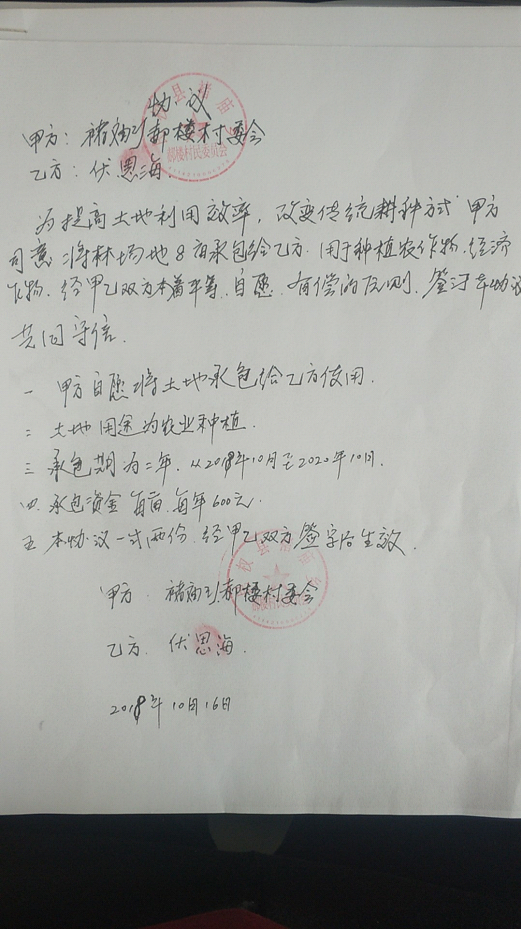 协议
甲方：褚庙乡郝楼村委会
乙方：伏思海
为提高土地利用效率，改变传统耕种方式 甲方
同意将林场地8亩承包给乙方.用于种植农作物.经济
作物.经甲乙双方本着平等、自愿、有偿的原则.签订本协议
共同守信.
一 甲方自愿将土地承包给乙方使用.
二 土地用途为农业种植.
三 承包期为二年.从2018年10月至2020年10月.
四.承包资金 每亩每年600元.
五 本协议一式两份.经甲乙双方签字后生效.
甲方 褚庙乡郝楼村委会
乙方. 伏思海.
2018年10月16日